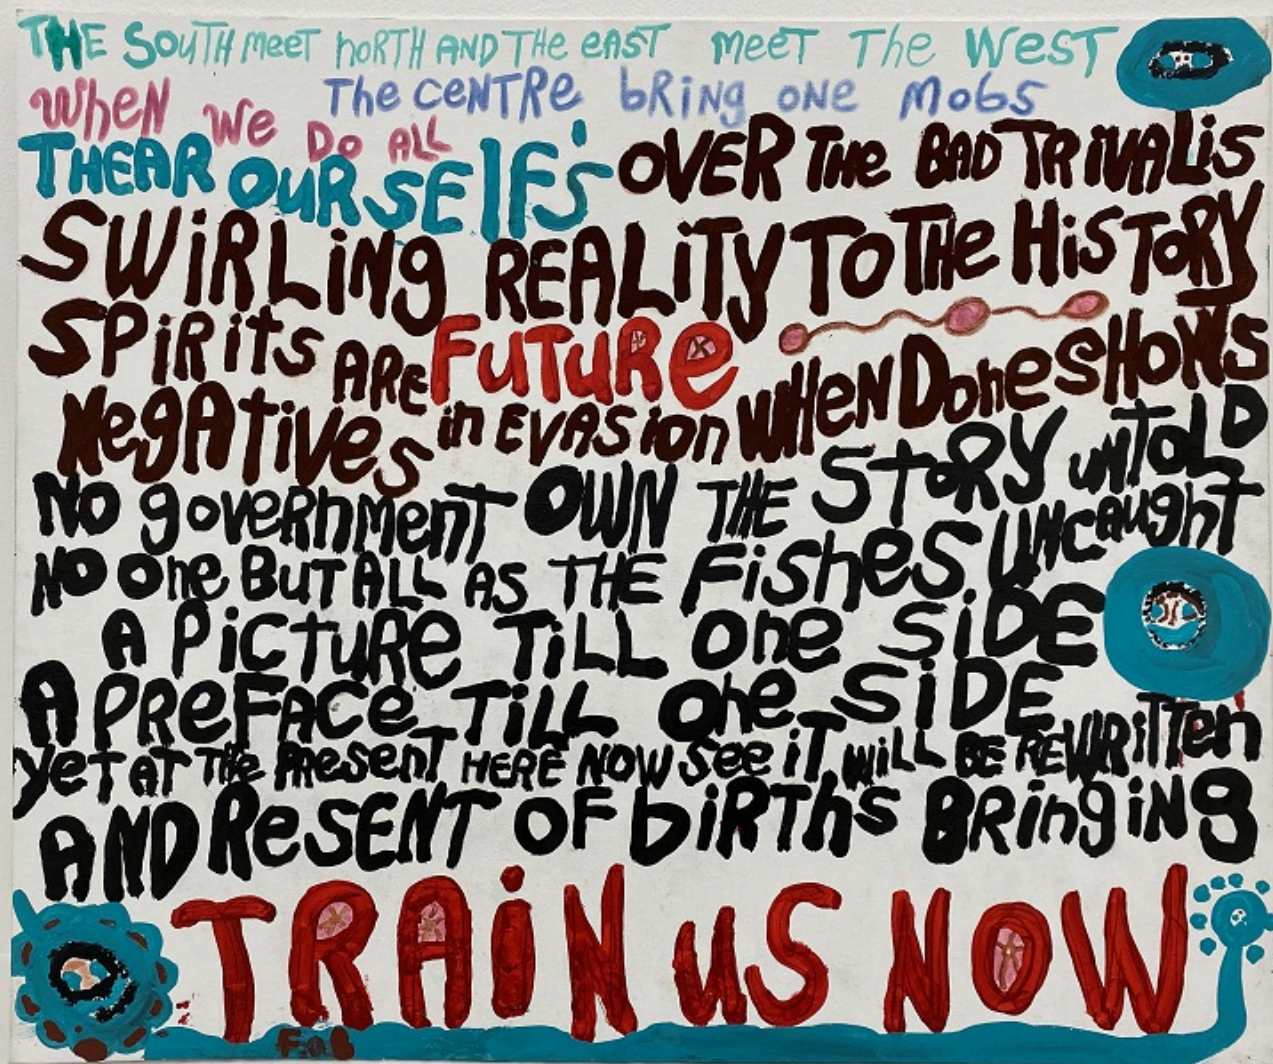 THE SOUTH meeT NORTH AND THE eAST meeT The WesT
WheN we Do ALL The CeNTRe bRiNg oNe Mobs
THEAR OURSElFs OVER THe BAD TRiVALiS
SWiRLiNg REALiTy TO THe HiSTORY
SPiRits ARe FuTuRe WHeN Done SHOWs
NegAtives in EVASion
No goveRnmenT OWN THE STORY unTolD
No One BuT ALL AS THE FisHes UNcaughT
A PiCTURe TiLL one SiDE
A PReFACe TiLL One SiDE
yeT AT THe PResenT HERE NOW See iT WiLL BE ReWRiTTen
AND ReSENT OF biRThs BRinging
TRAiN uS NOW